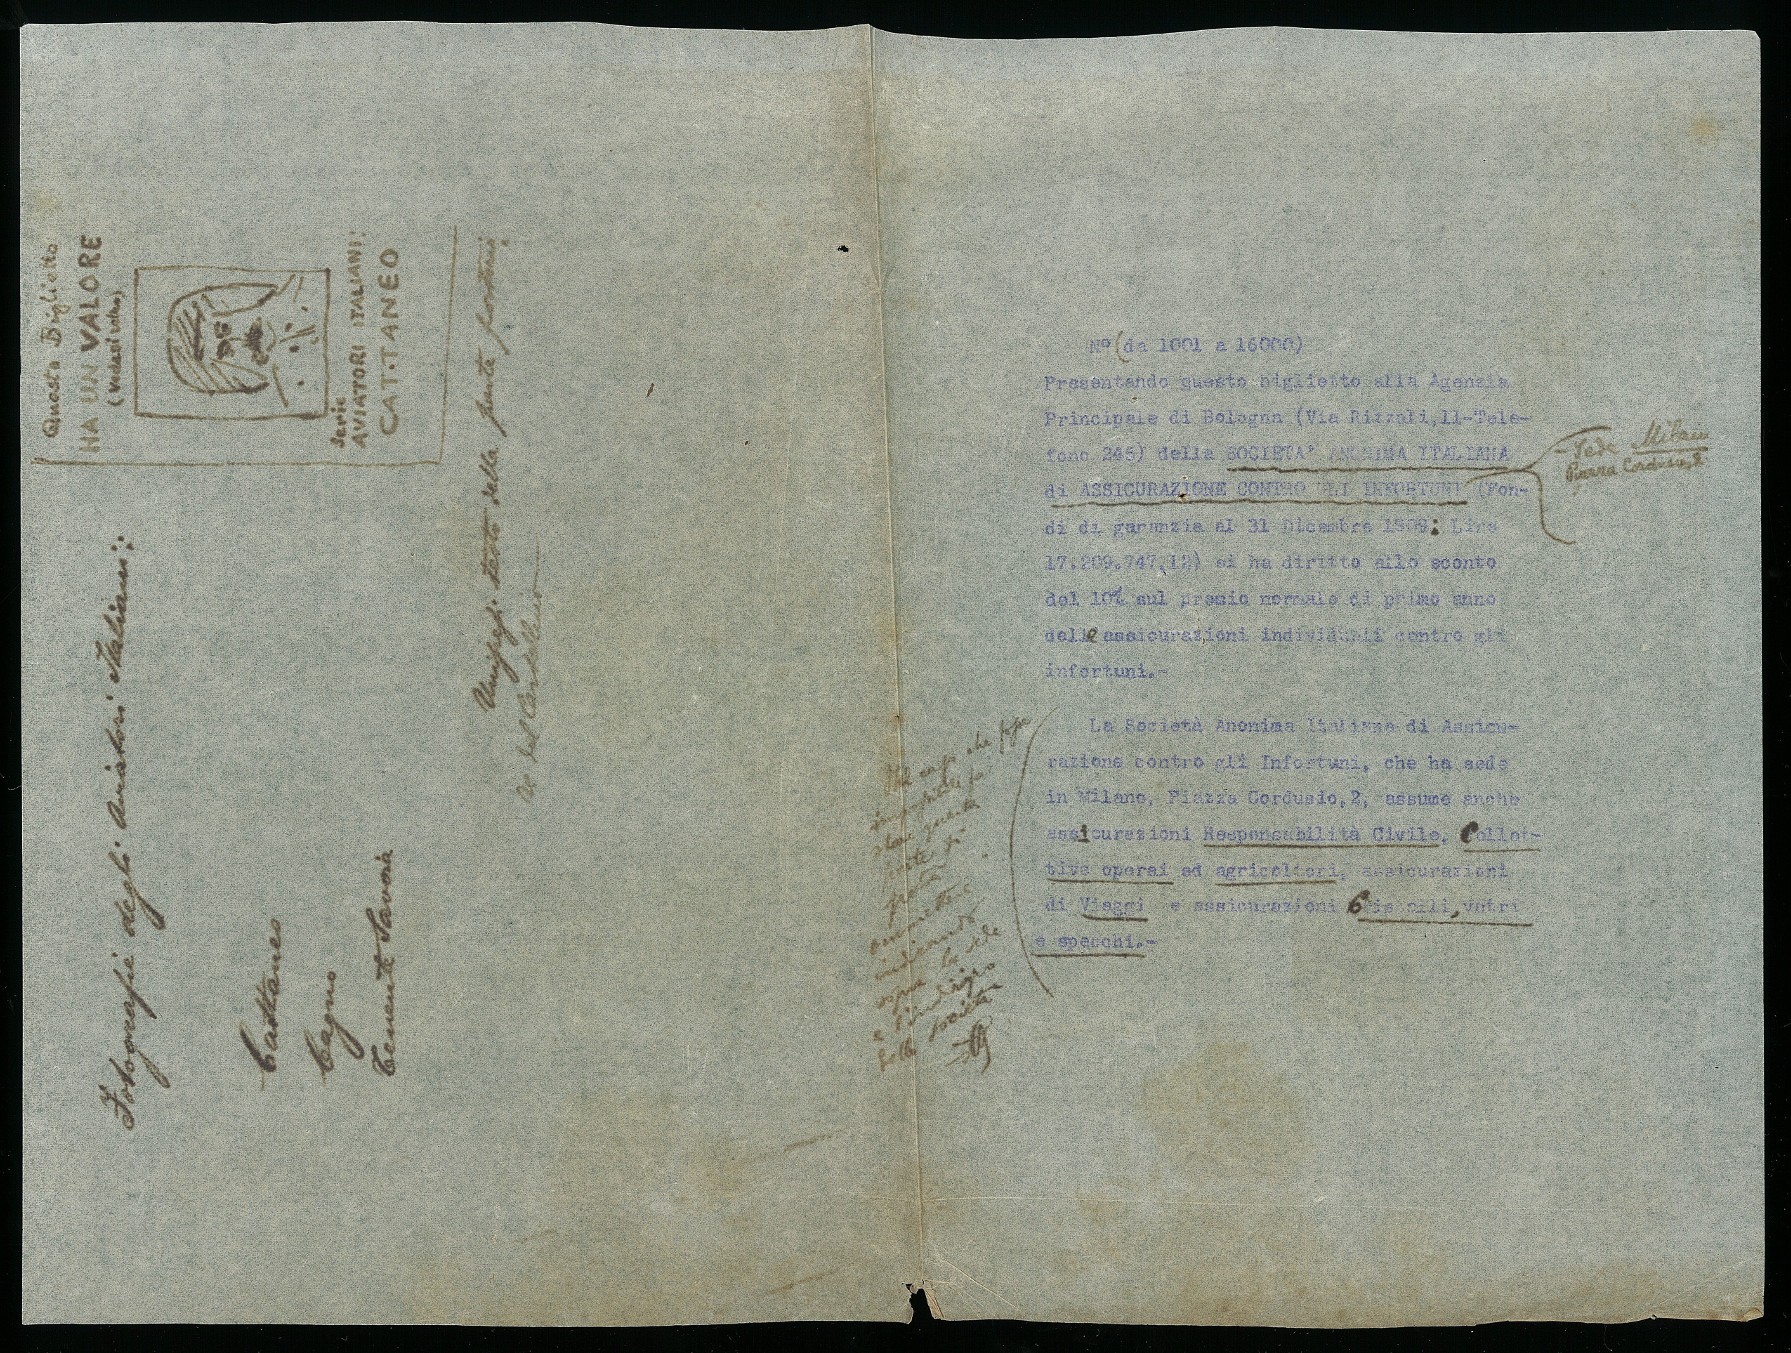 Questo Biglietto
HA UN VALORE
Serie
AVIATORI ITALIANI:
CATTANEO
testo della parte
Fotografie degli Aviatori Italiani:
Cattaneo
Cagno
Tenente Savoia
Nº (da 1001 a 16000)
Presentando questo biglietto alla Agenzia
Principale di Bologna (Via Rizzoli,11-Tele-
fono 245) della SOCIETA' ANONIMA ITALIANA
di ASSICURAZIONE CONTRO GLI INFORTUNI (Fon-
di di garanzia al 31 Dicembre 1909: Lire
17.209.747,12) si ha diritto allo sconto
del 10% sul premio normale di primo anno
delle assicurazioni individuali contro gli
infortuni.-
- Sede Milano
Piazza Cordusio, 2
La Società Anonima Italiana di Assicu-
razione contro gli Infortuni, che ha sede
in Milano, Piazza Cordusio,2, assume anche
assicurazioni Responsabilità Civile, Collet-
tive operai ed agricoltori, assicurazioni
di Viaggi e assicurazioni Cristalli, vetri
e specchi.-
Nel caso che
questa
parte si
sopra la sede
e l'indirizzo
della società